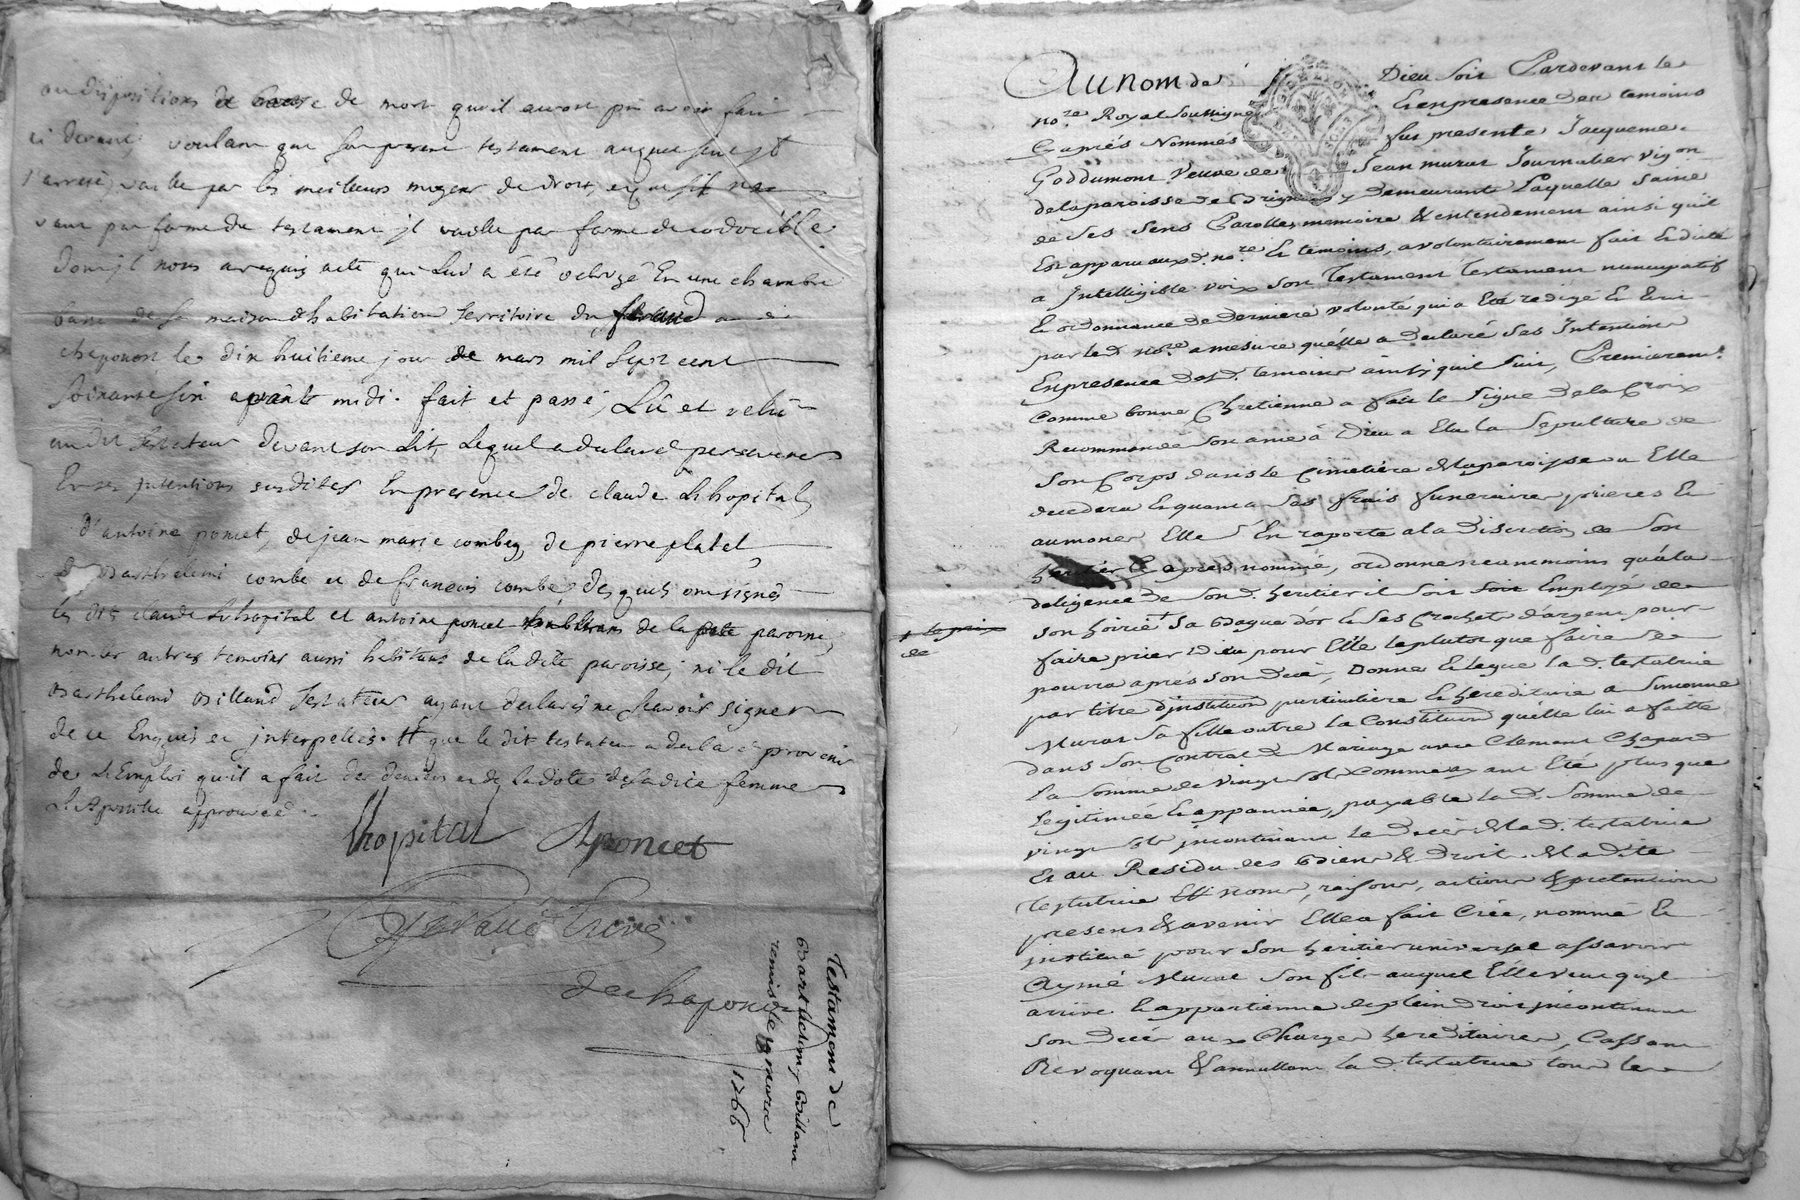 ou dispositions de cause de mort quil auroit pu avoir fait
ci devant, voulant que son present testament auquel seul il
s'arrete, vaille par les meilleurs moyens de droit, et que sil ne
vaut par forme de testament jl vaille par forme de codocille
Dont jl nous a requis acte qui Lui a été octroyé En une chambre
basse de sa maison d'habitation territoire du
chaponost le dix huitieme jour de mars mil Sept cent
soixante six avant midi. fait et passé, Lû et relû
au dit testateur devant son Lit, Lequel a declaré perseverer
En ses jntentions susdites En presence de claude Lhopital,
d'antoine poncet, de jean marie combe, de pierre platel
de Barthelemi combe et de francois combe, desquels ont signés
les dits claude Lhopital et antoine poncet de la paroisse,
non les autres temoins aussi habitans de la dite paroisse, ni le dit
Barthelemi Billand testateur ayant declaré ne scavoir signer
de ce Enquis et jnterpellés. que le dit testateur a declaré provenir
de L'Emploi qu'il a fait des deniers de la dote de la dite femme
L'Apostille approuvée.
Lhopital Aponcet
de chaponost
Testament de
Barthelemy Billand
remis le 19 mars
1766
Au nom de Dieu soit Pardevant le
no.re Royal soussigné Et en presence des temoins
Cy après Nommés fut presente Jacqueme
Goddumont Veuve de Jean murat Journalier vig.on
de la paroisse de Brignais y demeurante Laquelle saine
de ses sens Parolles, memoire & entendement ainsi quil
Est apparu auxd. no.re Et temoins, a volontairement fait Et dicté
a Intelligible voix son Testament Testament nuncupatif
Et ordonnance de derniere volonté qui a Eté redigé Et Ecrit
par led. no.re a mesure qu'elle a declaré ses Intentions
En presence desd. temoins ainsy quil suit, Premierem.t
Comme bonne Chretienne a fait le signe de la Croix
Recommandé son ame à Dieu a Elu la sepulture de
son Corps dans le Cimetiere de la paroisse ou Elle
decedera Et quant a ses frais funeraires, prieres Et
aumones Elle s'En raporte a la Discretion de son
heritier cy apres nommé, ordonne neanmoins qu'a la
deligence de son d. heritier il soit soit Employé de
+ le prix
de
son hoirie + sa Bague d'or & ses Crochets d'argent pour
faire prier Dieu pour Elle le plutot que faire se
pourra après son decé, Donne Et legue la d. testatrice
par titre d'jnstitution particuliere Et hereditaire a Simonne
Murat sa fille outre la Constitution qu'elle lui a faitte
dans son Contrat de Mariage avec Clement Chapard
La somme de vingt st. Comme ayant Eté plus que
legitimée Et appannée, payable la d. somme de
vingt st. jncontinant le decé de la d. testatrice
Et au Residu des Biens & droits de la dite
testatrice Et noms, raisons, actions & pretentions
presens & avenir Elle a fait Créé, nommé Et
jnstitué pour son heritier universel assavoir
Aymé Murat son fils auquel Elle veut quil
arrive & appartienne de plein droit jncontinant
son Decé aux Charges hereditaires, Cassant
Revoquant & annullant la d. testatrice tous les